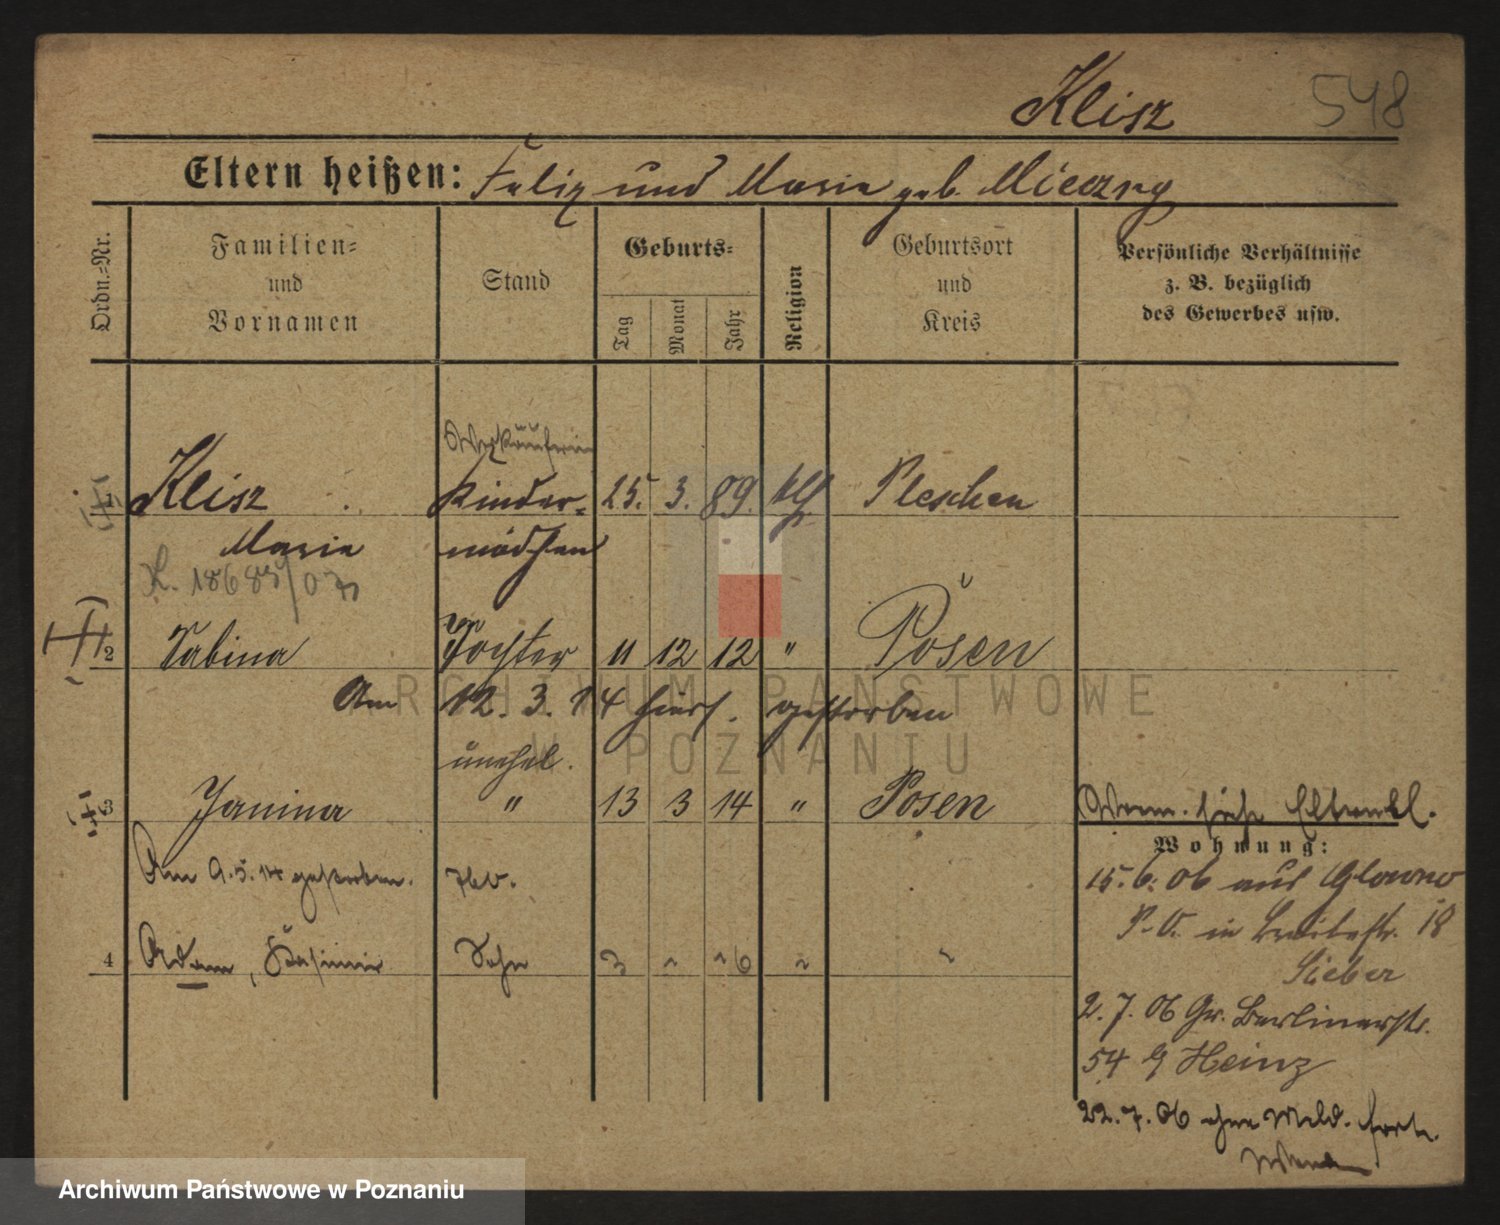 Klisz 548
Eltern heißen: Felix und Marie geb. Mieczny
Ordn.-Nr.
Familien-
und
Vornamen
Stand
Geburts-
Tag
Monat
Jahr
Religion
Geburtsort
und
Kreis
Persönliche Verhältnisse
z. B. bezüglich
des Gewerbes usw.
Verkäuferin
1 Klisz Kinder- 25. 3. 89. kth. Pleschen
Marie mädchen
2 Sabina Tochter 11 12 12 " Posen
Am 12. 3. 14 hiers. gestorben
unehel.
3 Janina " 13 3 14 " Posen
Am 9. 5. 14 gestorben.
4 Adam, Kasimir Sohn 3
Wohnung:
15. 6. 06 aus Glowno
P. O. in Breitestr. 18
Sieber
2. 7. 06 Gr. Berlinerstr.
54 Heinz
22. 7. 06 ohne Meld. fort.
ARCHIWUM PAŃSTWOWE
W POZNANIU
Archiwum Państwowe w Poznaniu